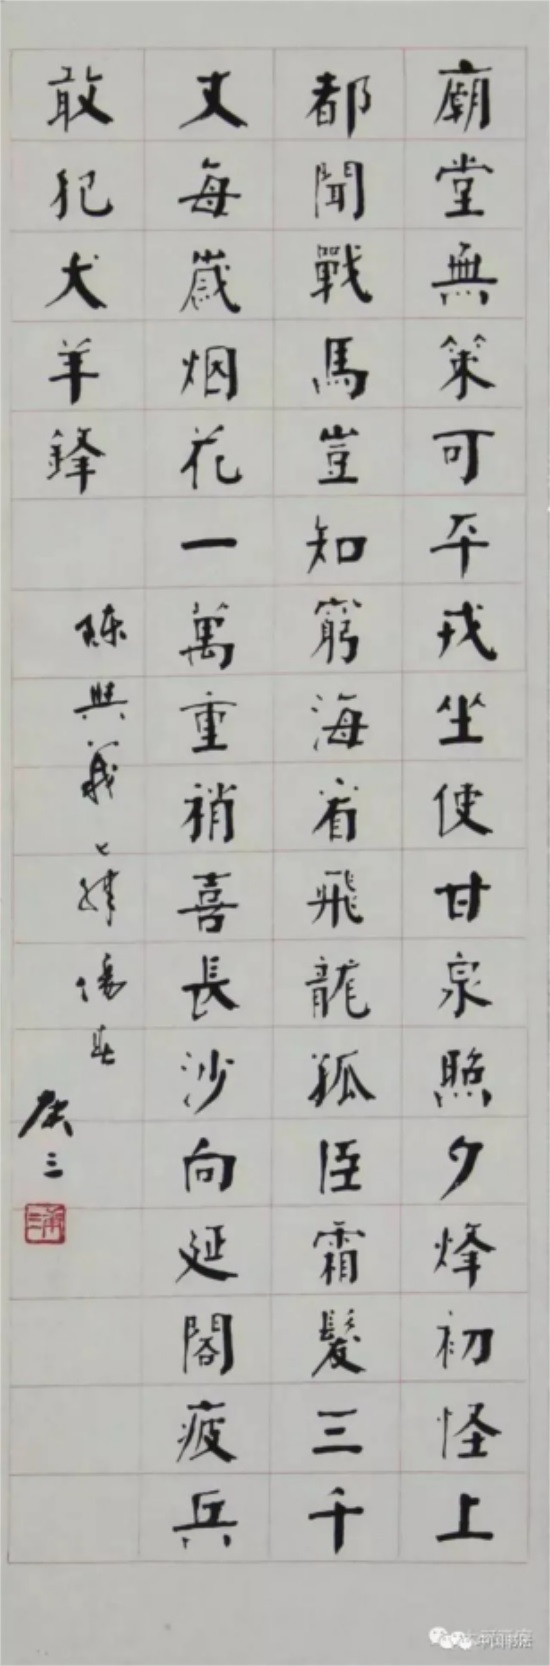 廟堂無策可平戎坐使甘泉照夕烽初怪上
都聞戰馬豈知窮海看飛龍孤臣霜髮三千
丈每歲烟花一萬重稍喜長沙向延閣疲兵
敢犯犬羊鋒
陳與義七律傷春
三